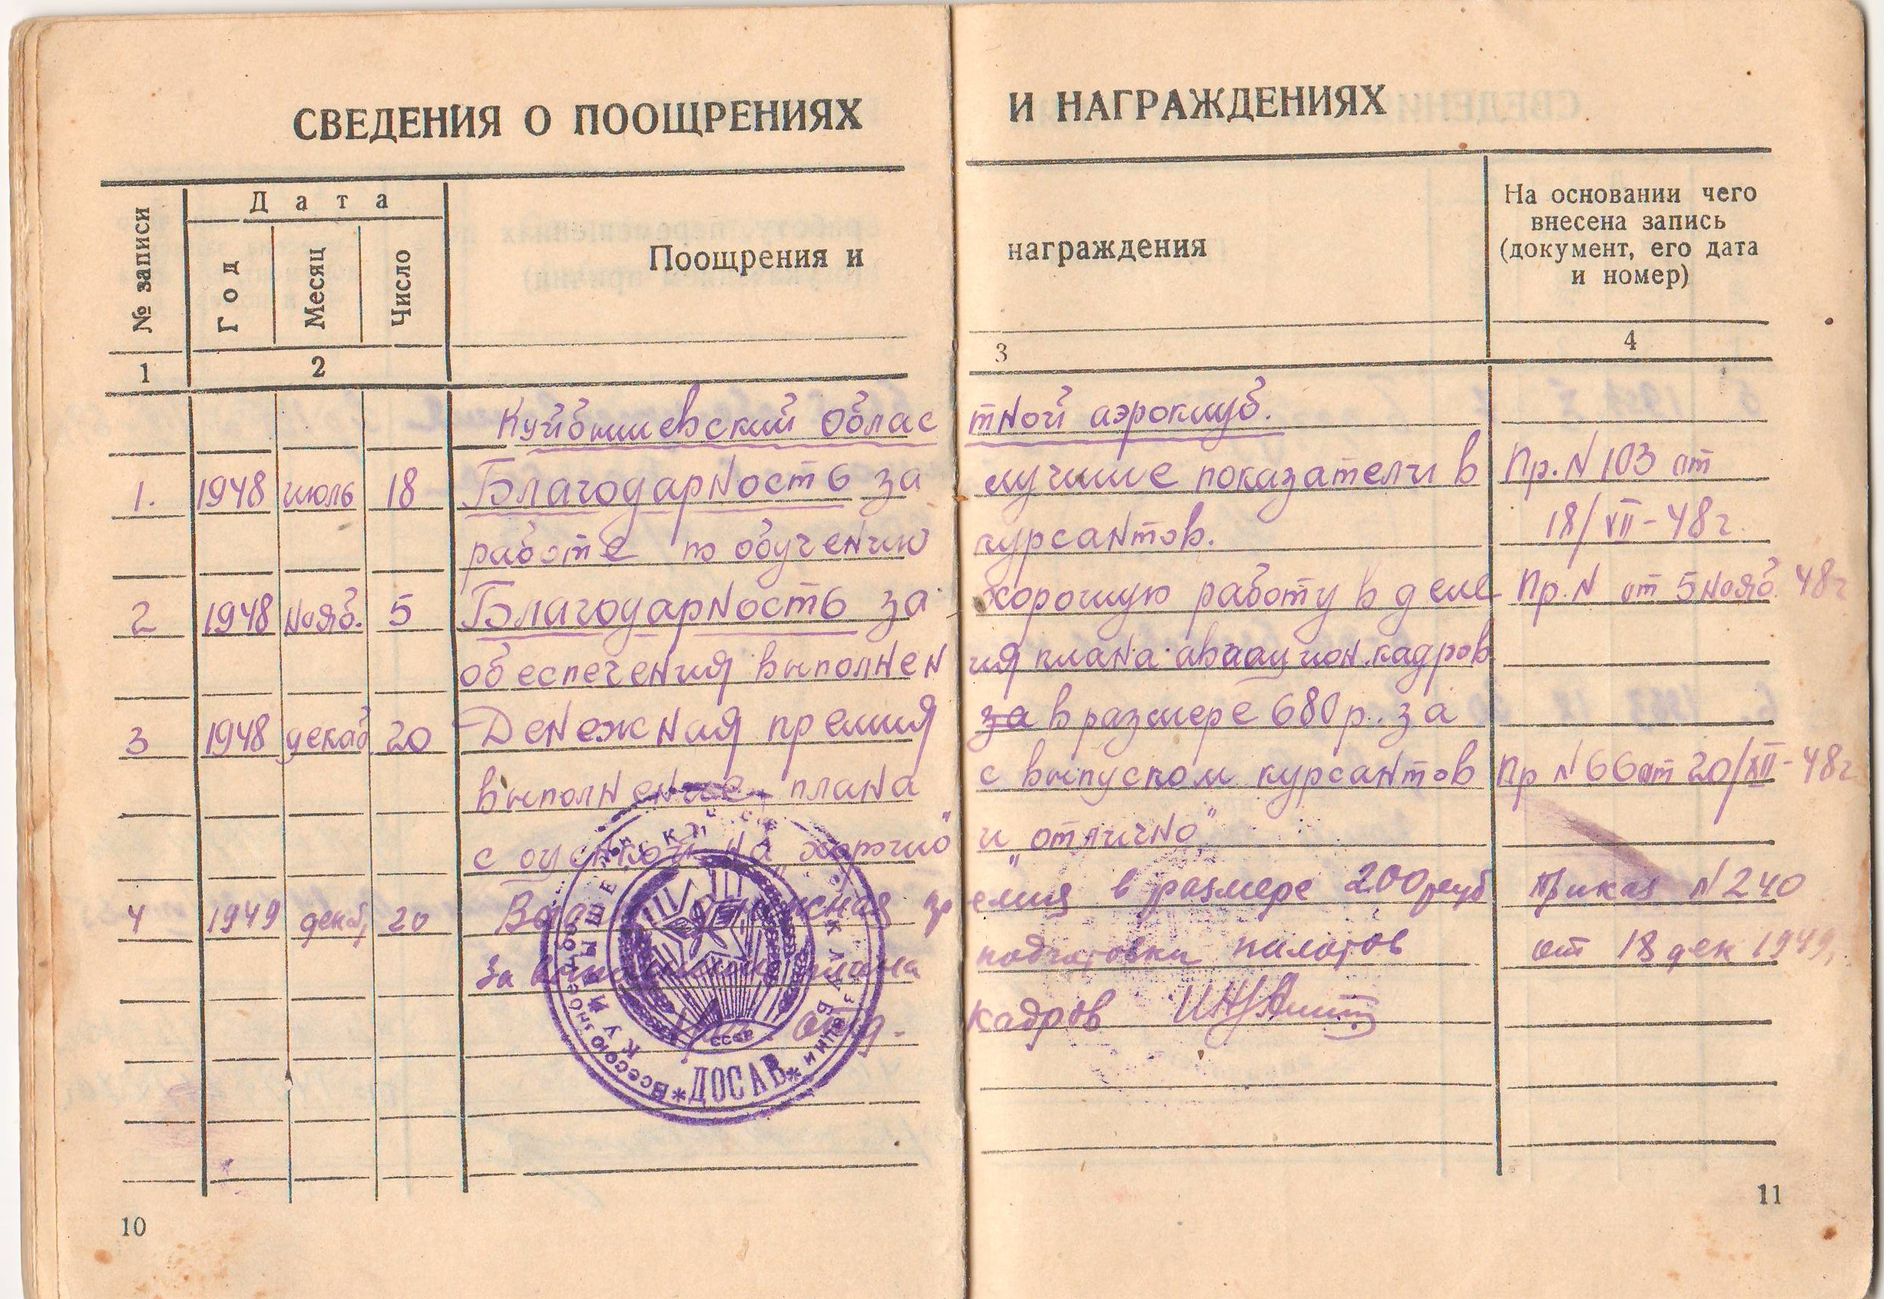 СВЕДЕНИЯ О ПООЩРЕНИЯХ И НАГРАЖДЕНИЯХ
№ записи
Дата
Год
Месяц
Число
Поощрения и награждения
На основании чего
внесена запись
(документ, его дата
и номер)
1 2 3 4
Куйбышевский областной аэроклуб.
1. 1948 июль 18 Благодарность за лучшие показатели в Пр. N 103 от
работе по обучению курсантов. 18/VII-48г.
2 1948 нояб. 5 Благодарность за хорошую работу в деле Пр. N от 5 нояб. 48г
обеспечения выполнения плана авиацион. кадров
3 1948 декаб 20 Денежная премия за в размере 680р. за
выполнение плана с выпуском курсантов Пр N 66 от 20/XII-48г
с оценкой на "хорошо" и "отлично"
4 1949 декб, 20 премия в размере 200 руб Приказ N 240
за плана подготовки пилотов от 18 дек 1949,
кадров
КУЙБЫШЕВСКИЙ АЭРОКЛУБ
Всесоюзное
СССР
*ДОСАВ*
10
11